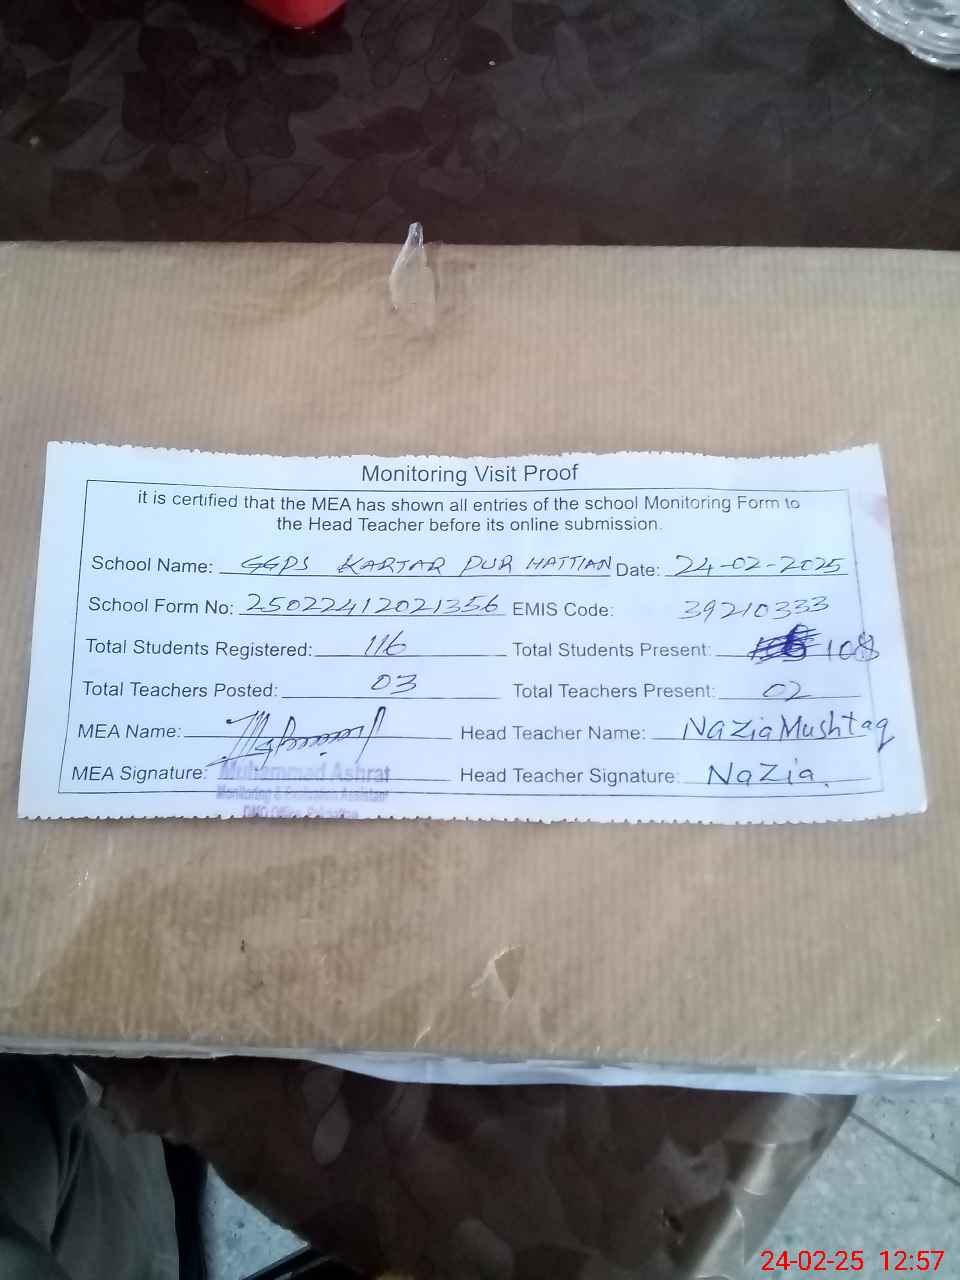 Monitoring Visit Proof
it is certified that the MEA has shown all entries of the school Monitoring Form to
the Head Teacher before its online submission.
School Name: GGPS KARTAR PUR HATTIAN Date: 24-02-2025
School Form No: 25022412021356 EMIS Code: 39210333
Total Students Registered: 116 Total Students Present: 108
Total Teachers Posted: 03 Total Teachers Present: 02
MEA Name: Head Teacher Name: Nazia Mushtaq
MEA Signature: Muhammad Ashraf Head Teacher Signature: Nazia.
Monitoring & Evaluation Assistant
DMO Office
24-02-25 12:57